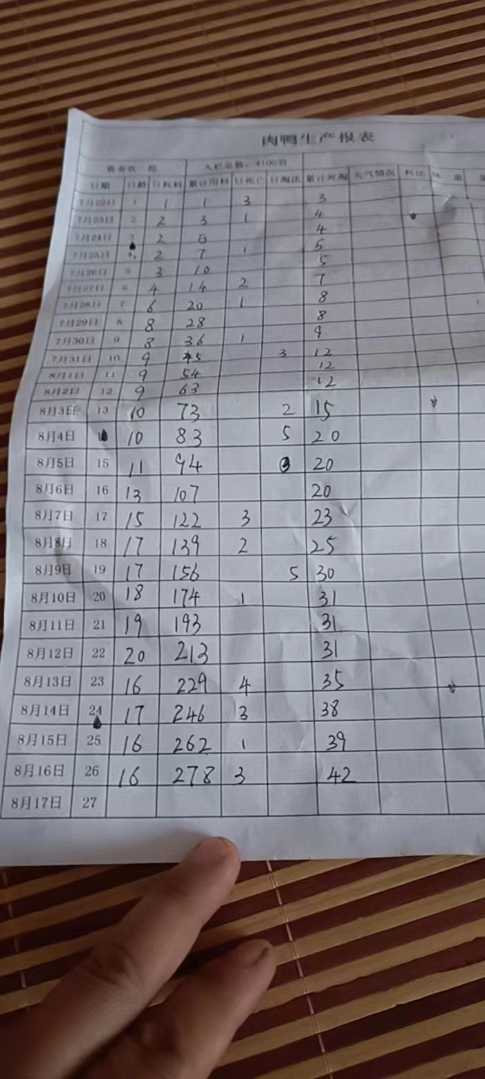 肉鸭生产报表
入栏总数：4100羽
日期 日龄 日耗料 累计用料 日死亡 日淘汰 累计死淘 天气情况 料比
7月22日 1 1 1 3 3
7月23日 2 2 3 1 4
7月24日 2 4
7月25日 2 7 1 5
7月26日 5 3 10 5
7月27日 6 4 14 2 7
7月28日 7 6 20 1 8
7月29日 8 8 28 8
7月30日 9 8 36 1 9
7月31日 10 9 45 3 12
8月1日 11 9 54 12
8月2日 12 9 63 12
8月3日 13 10 73 2 15
8月4日 10 83 5 20
8月5日 15 11 94 20
8月6日 16 13 107 20
8月7日 17 15 122 3 23
8月8日 18 17 139 2 25
8月9日 19 17 156 5 30
8月10日 20 18 174 1 31
8月11日 21 19 193 31
8月12日 22 20 213 31
8月13日 23 16 229 4 35
8月14日 24 17 246 3 38
8月15日 25 16 262 1 39
8月16日 26 16 278 3 42
8月17日 27